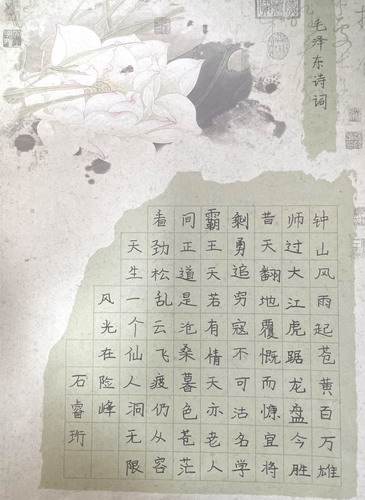 毛泽东诗词
钟山风雨起苍黄百万雄
师过大江虎踞龙盘今胜
昔天翻地覆慨而慷宜将
剩勇追穷寇不可沽名学
霸王天若有情天亦老人
间正道是沧桑暮色苍茫
看劲松乱云飞疲仍从容
天生一个仙人洞无限
风光在险峰
石睿珩